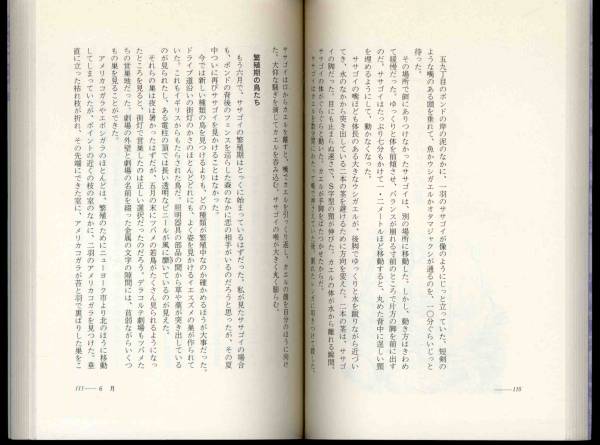 五九丁目のポンドの岸の泥のなかに、一羽のササゴイが像のようにじっと立っていた。短剣の
ような嘴のある頭を垂れて、魚かウシガエルかオタマジャクシが通るのを、一〇分ぐらいじっと
待った。
その場所で餌にありつけなかったササゴイは、別の場所に移動した。しかし、動き方はきわめ
て緩慢だった。ゆっくりと体を前傾させ、バランスが崩れる寸前のところで片方の脚を前に出す
のだ。ササゴイはたっぷり七分もかけて一・二メートルほど移動すると、丸めた背中に逞しい頸
を埋めるようにして、動かなくなった。
ササゴイの嘴ほども体長のある大きなウシガエルが、後脚でゆっくりと水を蹴りながら近づい
てき、水のなかから突き出している二本の茎を避けるために方向を変えた。二本の茎は、ササゴ
イの脚だった。目にも止まらぬ速さで、S字型の頸が伸びた。カエルの体が水から離れる瞬間、
ササゴイの体がぐらぐらと動いた。カエルが手脚をばたつかせたからだ。
110
ササゴイは口からカエルを離すと、嘴でカエルを引っくり返し、カエルの頭を自分のほうに向け
た。大仰な騒ぎを演じてカエルを呑み込む。ササゴイの喉が大きく丸く膨らむ。
繁殖期の鳥たち
もう六月で、ササゴイの繁殖期はとっくに始まっているはずだった。私が見たササゴイの場合
も、ポンドの背後のフェンスを巡らした森のなかに恋の相手がいるのだろうと思ったが、その夏
中ついに再びササゴイを見かけることはなかった。
今では新しい種類の鳥を見つけるよりも、どの種類が繁殖中なのか確かめるほうが大事だった。
ドライブ沿いの街灯のかさのほとんどどれにも、よく姿を見かけるイエスズメの巣が作られて
いた。これもイギリスからもたらされた鳥だ。照明器具の部品の間から草や藁が突き出している
のが見られたし、ある電柱の上部では長い透明なビニールが風に翻いているのが見えた。
それらの巣は夜は暑かったはずだが、五月の末にツバメの若鳥がたくさん見られるようになっ
たところを見ると、街灯で営巣したのは正しい選択だったのだろう。デラコルテ劇場もツバメた
ちの営巣地だった。劇場の外壁と劇場の名前を綴った金属の文字の隙間には、貧弱ながらいくつ
もの巣を見ることができた。
アメリカコガラやエボシガラのほとんどは、繁殖のためにニューヨーク市より北のほうに移動
してしまっていたが、ポイントの近くの枝の茎のなかに、二羽のアメリカコガラを見つけた。垂
直に立った枯れ枝が折れ、その先端にできた室に、アメリカコガラが苔と羽で裏ばりした巣をこ
111――6 月